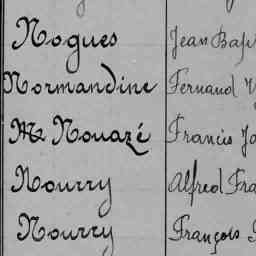 Nogues Jean
Normandine Fernand
Nouazé Francis
Nourry Alfred
Nourry François